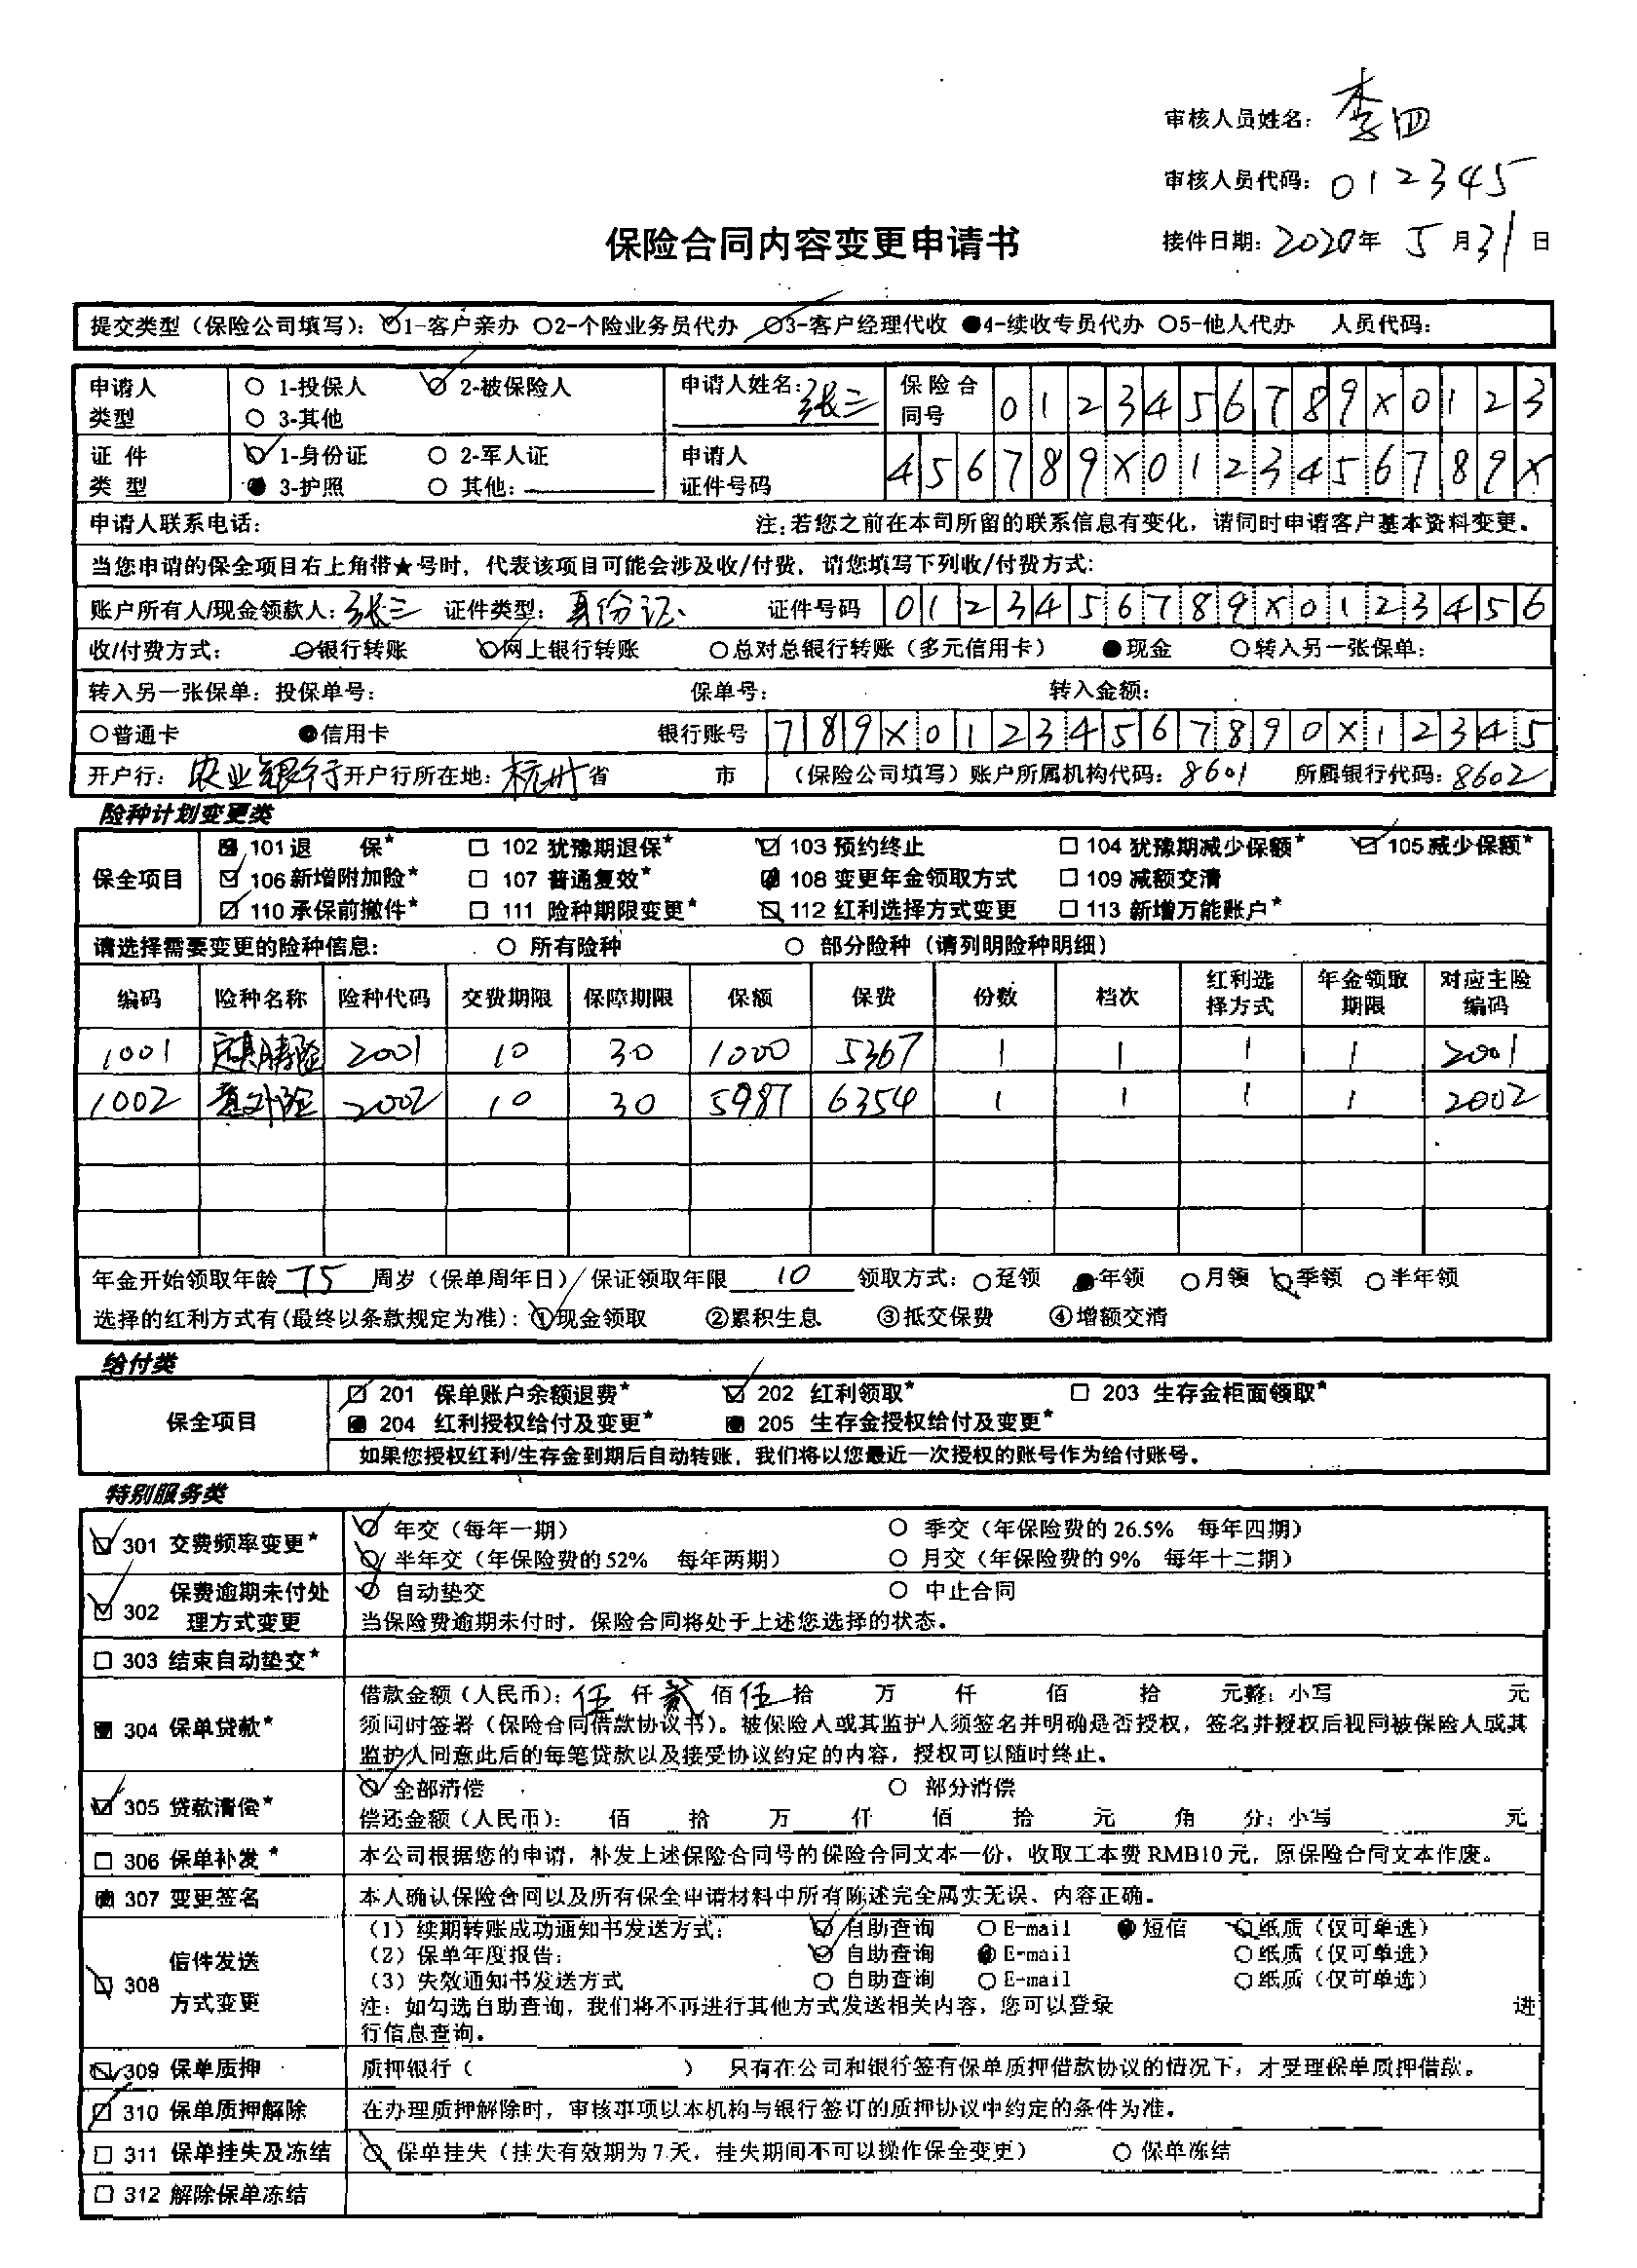 审核人员姓名：李四
审核人员代码：012345
保险合同内容变更申请书
接件日期：2020年 5月31日
提交类型（保险公司填写）：○1-客户亲办 ○2-个险业务员代办 ○3-客户经理代收 ●4-续收专员代办 ○5-他人代办 人员代码：
申请人类型 ○ 1-投保人 ○ 2-被保险人 ○ 3-其他 申请人姓名：张三 保险合同号 0123456789X0123
证件类型 ○ 1-身份证 ○ 2-军人证 ● 3-护照 ○ 其他： 申请人证件号码 456789X0123456789X
申请人联系电话： 注：若您之前在本司所留的联系信息有变化，请同时申请客户基本资料变更。
当您申请的保全项目右上角带★号时，代表该项目可能会涉及收/付费，请您填写下列收/付费方式：
账户所有人/现金领款人：张三 证件类型：身份证 证件号码 0123456789X0123456
收/付费方式： ○银行转账 ○网上银行转账 ○总对总银行转账（多元信用卡） ●现金 ○转入另一张保单：
转入另一张保单：投保单号： 保单号： 转入金额：
○普通卡 ●信用卡 银行账号 789X01234567890X12345
开户行：农业银行 开户行所在地：杭州省 市 （保险公司填写）账户所属机构代码：8601 所属银行代码：8602
险种计划变更类
保全项目
101退 保★ □ 102 犹豫期退保★ 103 预约终止 □ 104 犹豫期减少保额★ 105减少保额★
106新增附加险★ □ 107 普通复效★ 108 变更年金领取方式 □ 109 减额交清
110承保前撤件★ □ 111 险种期限变更★ 112 红利选择方式变更 □ 113 新增万能账户★
请选择需要变更的险种信息： ○ 所有险种 ○ 部分险种（请列明险种明细）
编码 险种名称 险种代码 交费期限 保障期限 保额 保费 份数 档次 红利选择方式 年金领取期限 对应主险编码
1001 定期寿险 2001 10 30 1000 5367 1 1 1 1 2001
1002 意外险 2002 10 30 5987 6354 1 1 1 1 2002
年金开始领取年龄 75 周岁（保单周年日）/保证领取年限 10 领取方式：○趸领 ●年领 ○月领 ○季领 ○半年领
选择的红利方式有(最终以条款规定为准)：①现金领取 ②累积生息 ③抵交保费 ④增额交清
给付类
保全项目
201 保单账户余额退费★ 202 红利领取★ □ 203 生存金柜面领取★
204 红利授权给付及变更★ 205 生存金授权给付及变更★
如果您授权红利/生存金到期后自动转账，我们将以您最近一次授权的账号作为给付账号。
特别服务类
301 交费频率变更★ ○ 年交（每年一期） ○ 季交（年保险费的26.5% 每年四期）
○ 半年交（年保险费的52% 每年两期） ○ 月交（年保险费的9% 每年十二期）
302 保费逾期未付处理方式变更 ○ 自动垫交 ○ 中止合同
当保险费逾期未付时，保险合同将处于上述您选择的状态。
□ 303 结束自动垫交★
304 保单贷款★ 借款金额（人民币）：伍仟贰佰伍拾 万 仟 佰 拾 元整；小写 元
须同时签署（保险合同借款协议书）。被保险人或其监护人须签名并明确是否授权，签名并授权后视同被保险人或其
监护人同意此后的每笔贷款以及接受协议约定的内容，授权可以随时终止。
305 贷款清偿★ ○ 全部清偿 ○ 部分清偿
偿还金额（人民币）： 佰 拾 万 仟 佰 拾 元 角 分；小写 元
□ 306 保单补发★ 本公司根据您的申请，补发上述保险合同号的保险合同文本一份，收取工本费RMB10元，原保险合同文本作废。
307 变更签名 本人确认保险合同以及所有保全申请材料中所有陈述完全属实无误、内容正确。
308 信件发送方式变更 （1）续期转账成功通知书发送方式： ○ 自助查询 ○ E-mail ● 短信 ○纸质（仅可单选）
（2）保单年度报告： ○ 自助查询 ● E-mail ○纸质（仅可单选）
（3）失效通知书发送方式 ○ 自助查询 ○ E-mail ○纸质（仅可单选）
注：如勾选自助查询，我们将不再进行其他方式发送相关内容，您可以登录 进
行信息查询。
309 保单质押 质押银行（ ） 只有在公司和银行签有保单质押借款协议的情况下，才受理保单质押借款。
310 保单质押解除 在办理质押解除时，审核事项以本机构与银行签订的质押协议中约定的条件为准。
□ 311 保单挂失及冻结 ○ 保单挂失（挂失有效期为7天，挂失期间不可以操作保全变更） ○ 保单冻结
□ 312 解除保单冻结